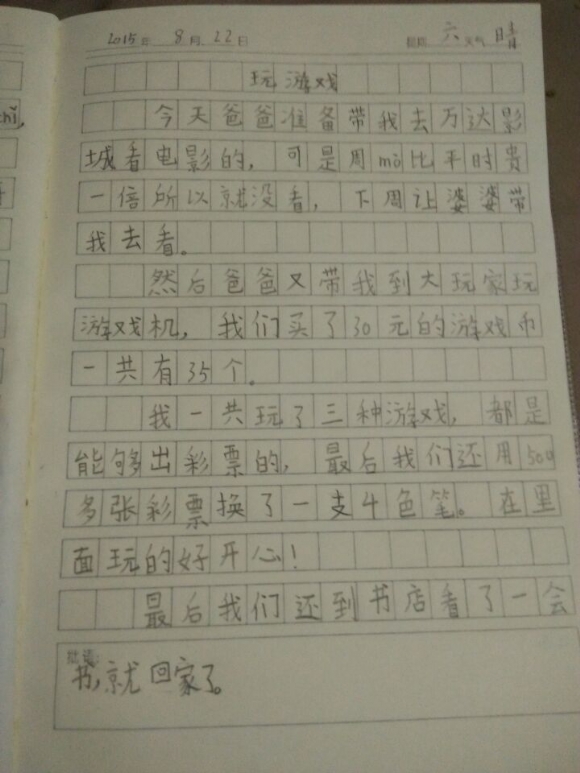 2015年 8月 22日 星期 六 天气 晴
玩游戏
今天爸爸准备带我去万达影
城看电影的，可是周mò比平时贵
一倍所以就没看，下周让婆婆带
我去看。
然后爸爸又带我到大玩家玩
游戏机，我们买了30元的游戏币
一共有35个。
我一共玩了三种游戏，都是
能够出彩票的，最后我们还用500
多张彩票换了一支4色笔。在里
面玩的好开心！
最后我们还到书店看了一会
书，就回家了。